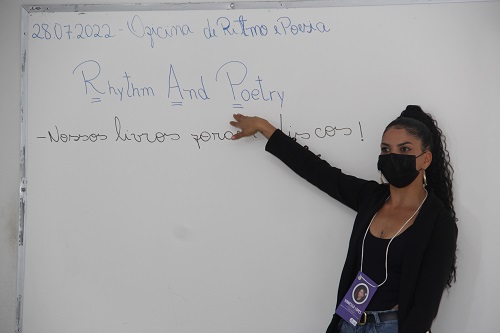 28.07.2022 - Oficina de Ritmo e Poesia
Rhythm And Poetry
- Nossos livros foram discos!